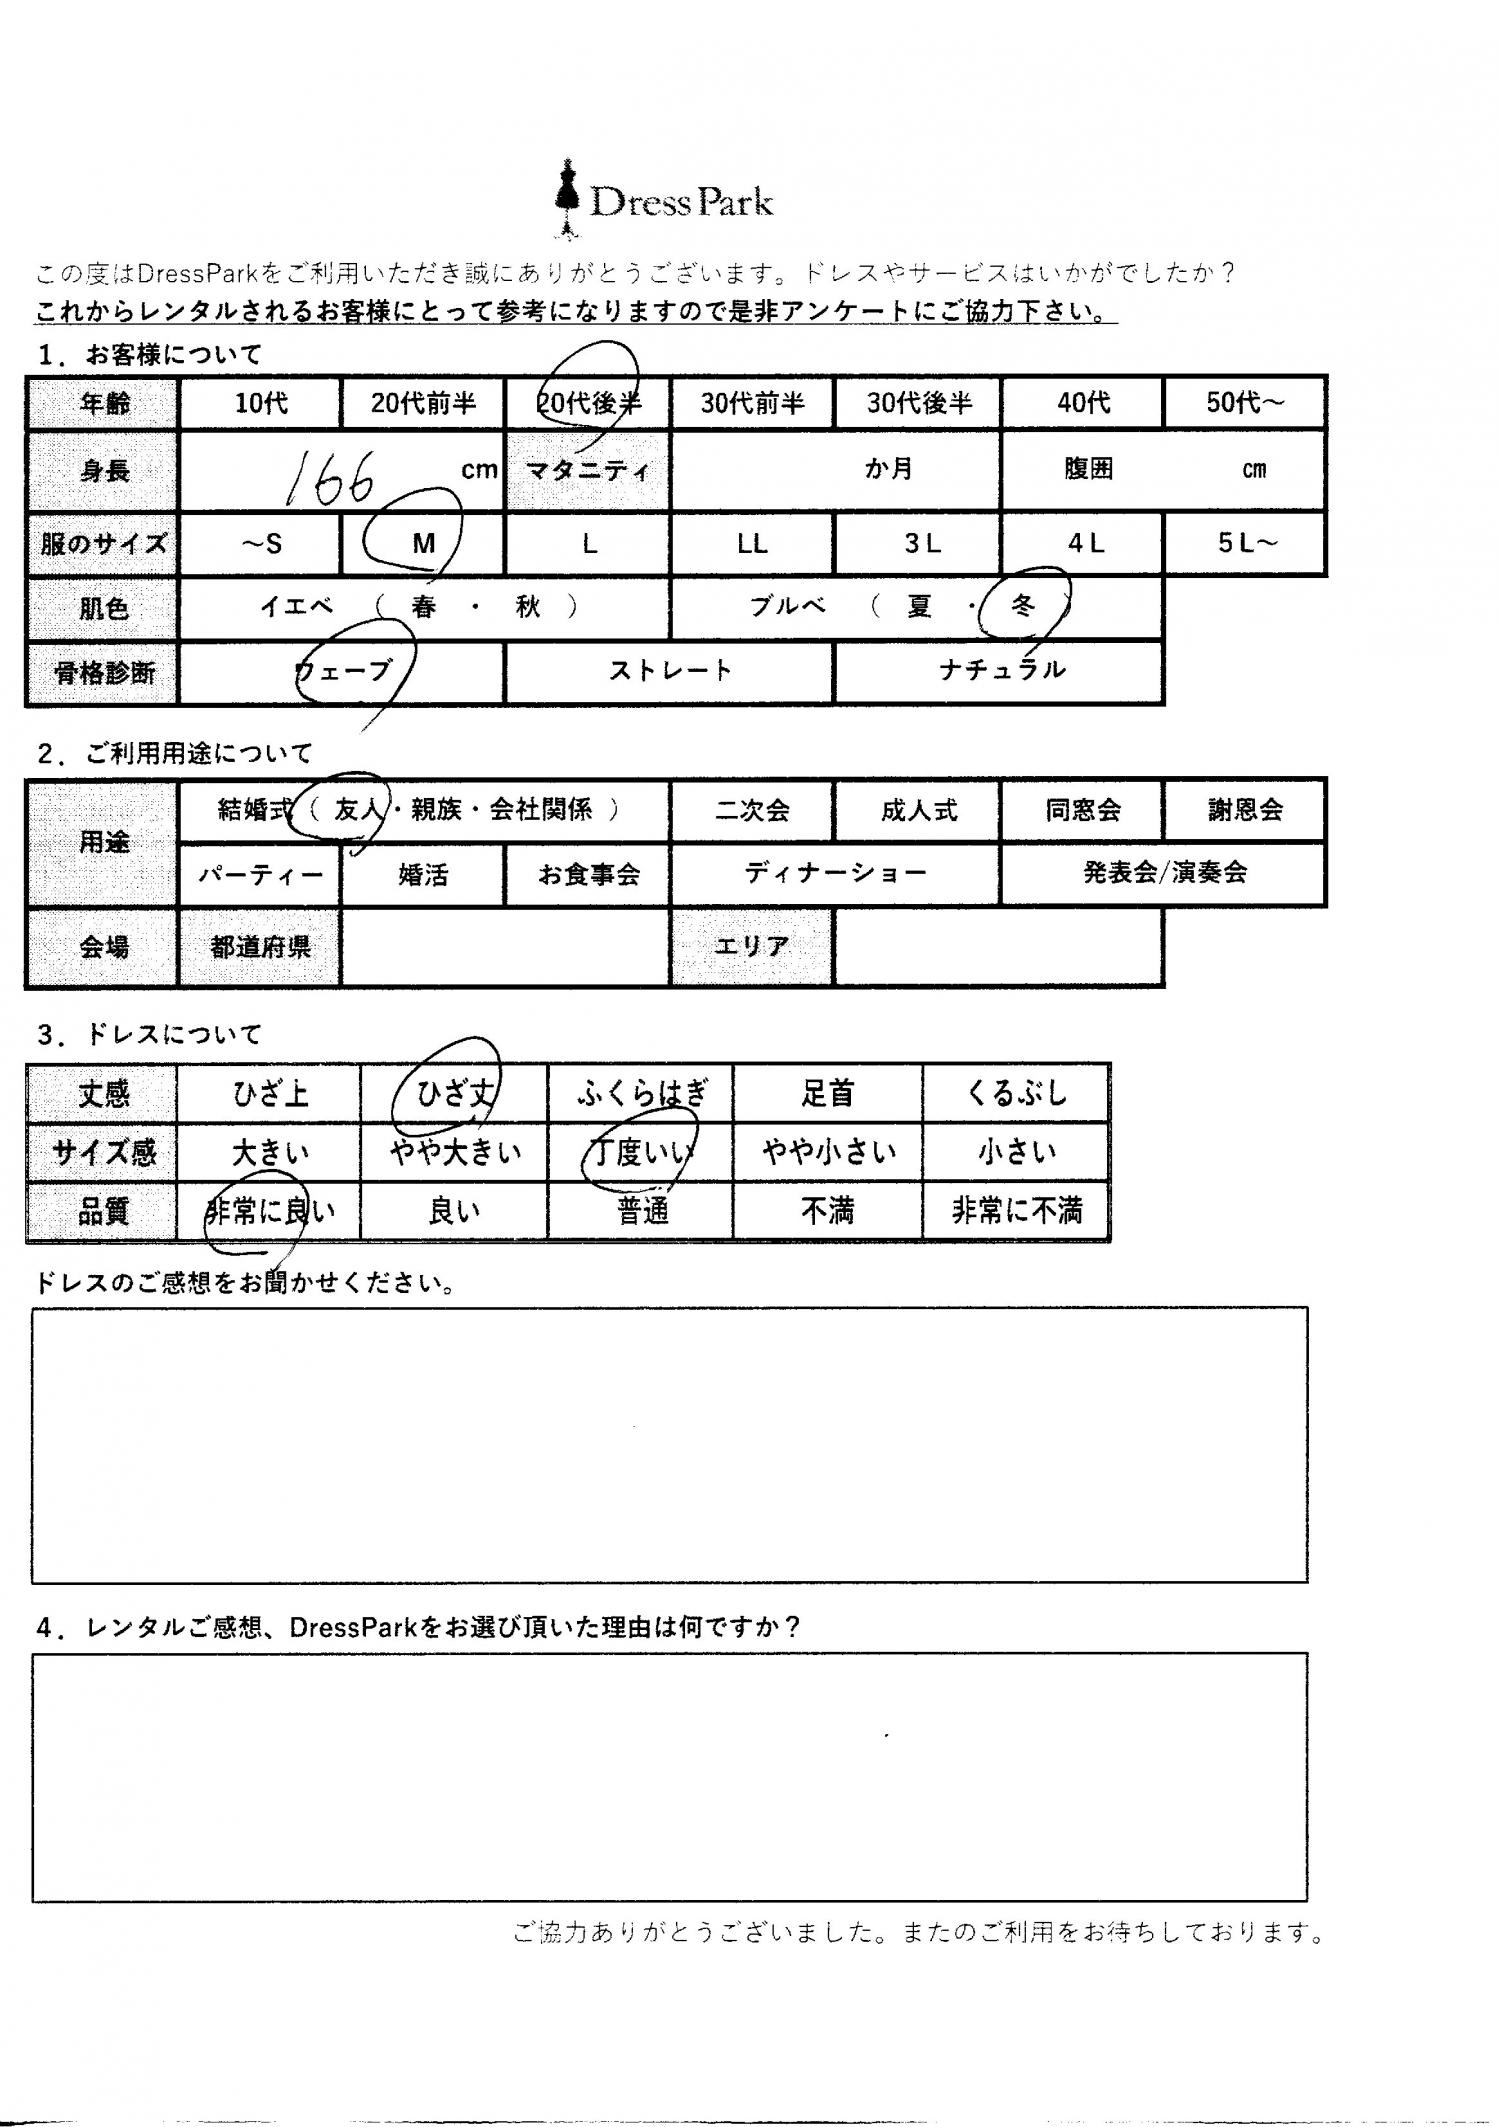 DressPark
この度はDressParkをご利用いただき誠にありがとうございます。ドレスやサービスはいかがでしたか？
これからレンタルされるお客様にとって参考になりますので是非アンケートにご協力下さい。
1．お客様について
年齢 10代 20代前半 20代後半 30代前半 30代後半 40代 50代～
身長 166 cm マタニティ か月 腹囲 cm
服のサイズ ～S M L LL 3L 4L 5L～
肌色 イエベ （ 春 ・ 秋 ） ブルベ （ 夏 ・ 冬 ）
骨格診断 ウェーブ ストレート ナチュラル
2．ご利用用途について
用途 結婚式（ 友人・親族・会社関係 ） 二次会 成人式 同窓会 謝恩会
パーティー 婚活 お食事会 ディナーショー 発表会/演奏会
会場 都道府県 エリア
3．ドレスについて
丈感 ひざ上 ひざ丈 ふくらはぎ 足首 くるぶし
サイズ感 大きい やや大きい 丁度いい やや小さい 小さい
品質 非常に良い 良い 普通 不満 非常に不満
ドレスのご感想をお聞かせください。
4．レンタルご感想、DressParkをお選び頂いた理由は何ですか？
ご協力ありがとうございました。またのご利用をお待ちしております。